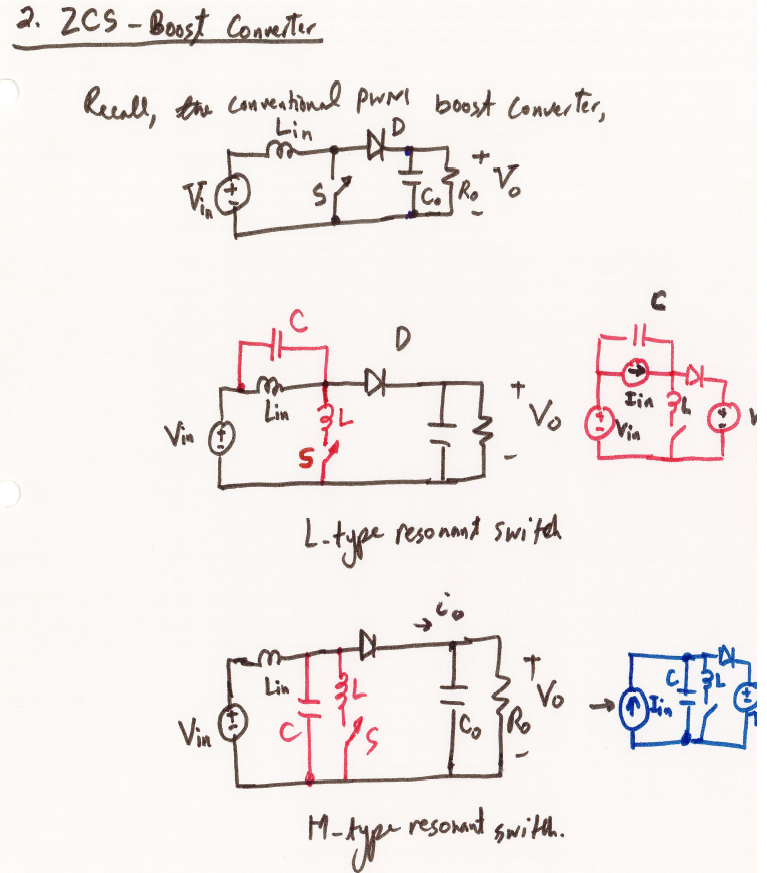 2. ZCS - Boost Converter
Recall, the conventional PWM boost converter,
Lin D
Vin S Co Ro + Vo -
C D
Lin L
Vin S + Vo -
C
Iin L
Vin
L-type resonant switch
io
Lin L
Vin C S Co Ro + Vo -
Iin C L
M-type resonant switch.